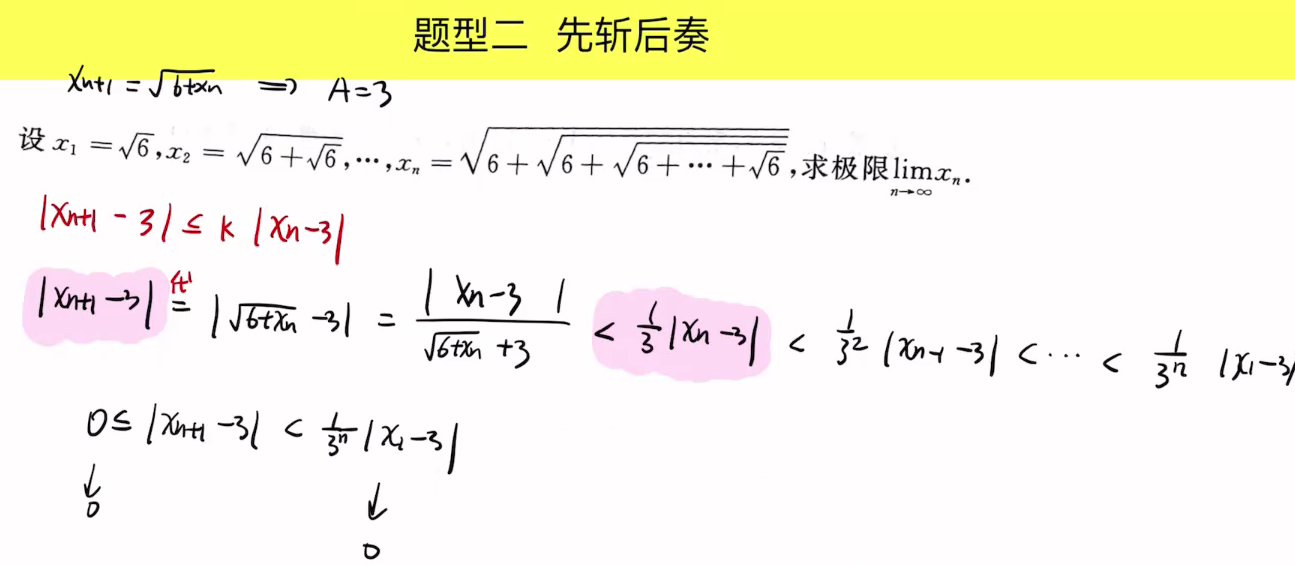 题型二 先斩后奏
xₙ₊₁ = √(6+xₙ) ⟹ A=3
设 x₁ = √6, x₂ = √(6+√6), ⋯, xₙ = √(6+√(6+√(6+⋯+√6))), 求极限 lim_{n→∞} xₙ.
|xₙ₊₁ - 3| ≤ k |xₙ-3|
|xₙ₊₁ -3| = |√(6+xₙ) -3| = |xₙ-3| / (√(6+xₙ) +3) < 1/3 |xₙ -3| < 1/3² |xₙ₋₁ -3| < ⋯ < 1/3ⁿ |x₁-3|
0 ≤ |xₙ₊₁ -3| < 1/3ⁿ |x₁-3|
↓ ↓
0 0